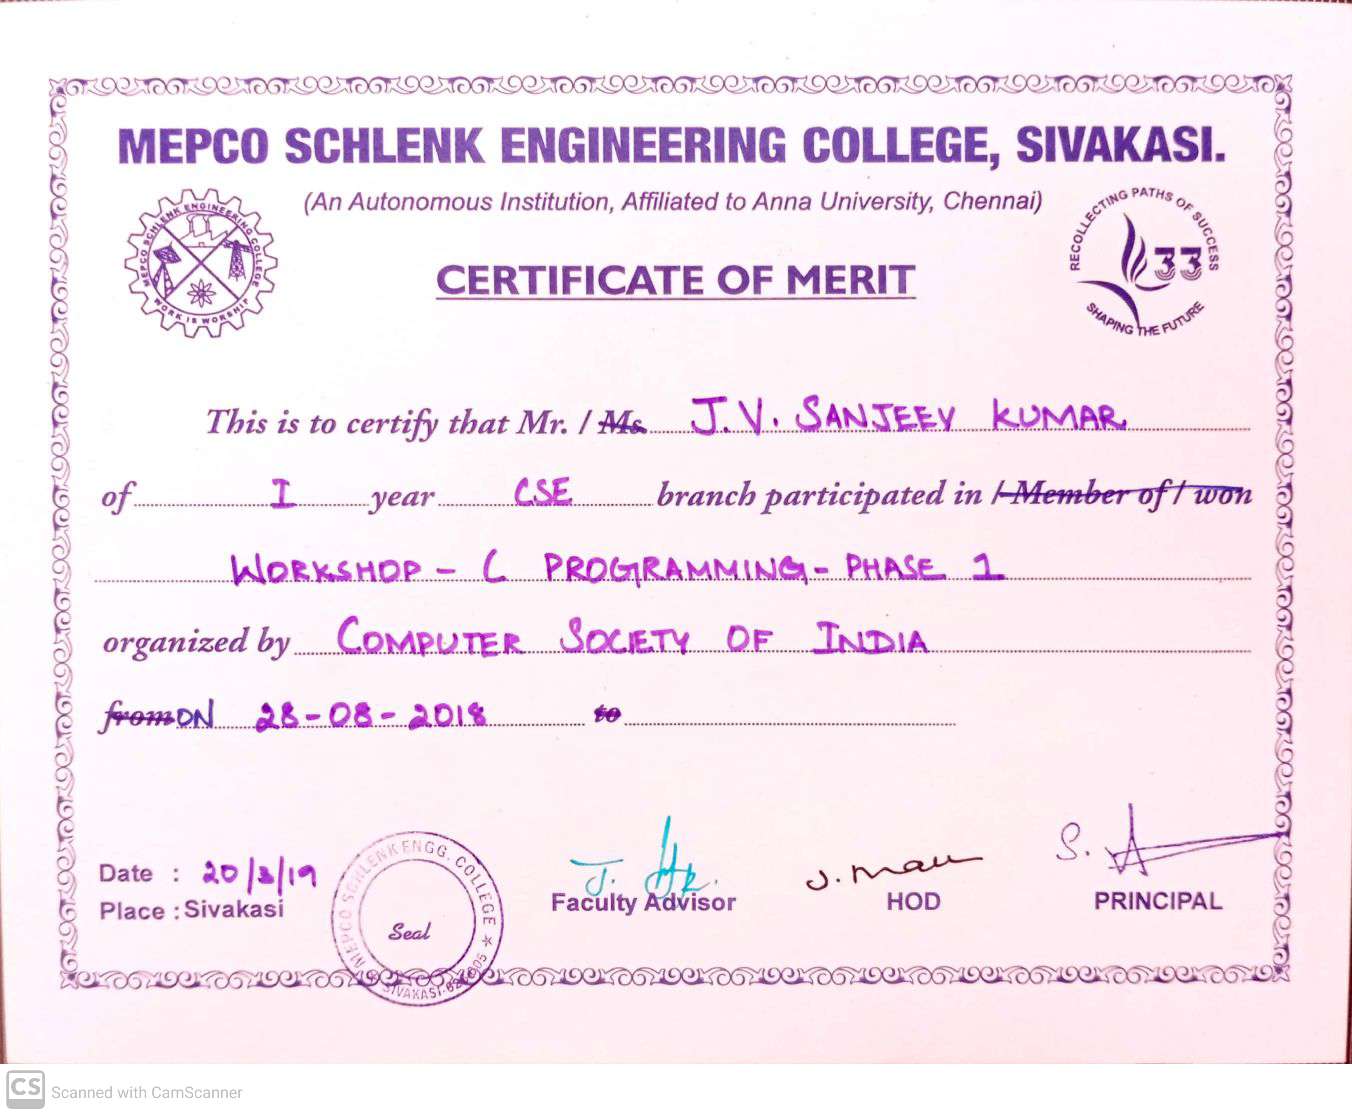 MEPCO SCHLENK ENGINEERING COLLEGE, SIVAKASI.
(An Autonomous Institution, Affiliated to Anna University, Chennai)
MEPCO SCHLENK ENGINEERING COLLEGE
WORK IS WORSHIP
RECOLLECTING PATHS OF SUCCESS
33
SHAPING THE FUTURE
CERTIFICATE OF MERIT
This is to certify that Mr. / Ms. J.V. SANJEEV KUMAR
of I year CSE branch participated in / Member of / won
WORKSHOP - C PROGRAMMING - PHASE 1
organized by COMPUTER SOCIETY OF INDIA
from ON 28-08-2018 to
Date : 20/3/19
Place : Sivakasi
MEPCO SCHLENK ENGG. COLLEGE
Seal
SIVAKASI-626005
Faculty Advisor
HOD
PRINCIPAL
CS Scanned with CamScanner